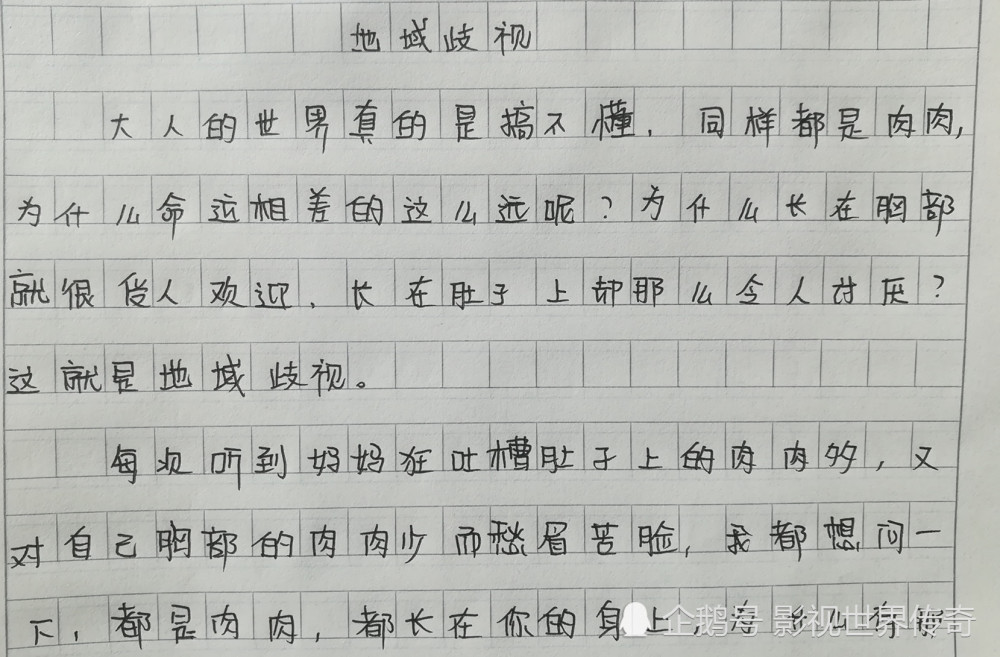 地域歧视
大人的世界真的是搞不懂，同样都是肉肉，
为什么命运相差的这么远呢？为什么长在胸部
就很俊人欢迎，长在肚子上却那么令人讨厌？
这就是地域歧视。
每次听到妈妈狂吐槽肚子上的肉肉多，又
对自己胸部的肉肉少而愁眉苦脸，我都想问一
下，都是肉肉，都长在你的身上，为什么
企鹅号 影视世界传奇